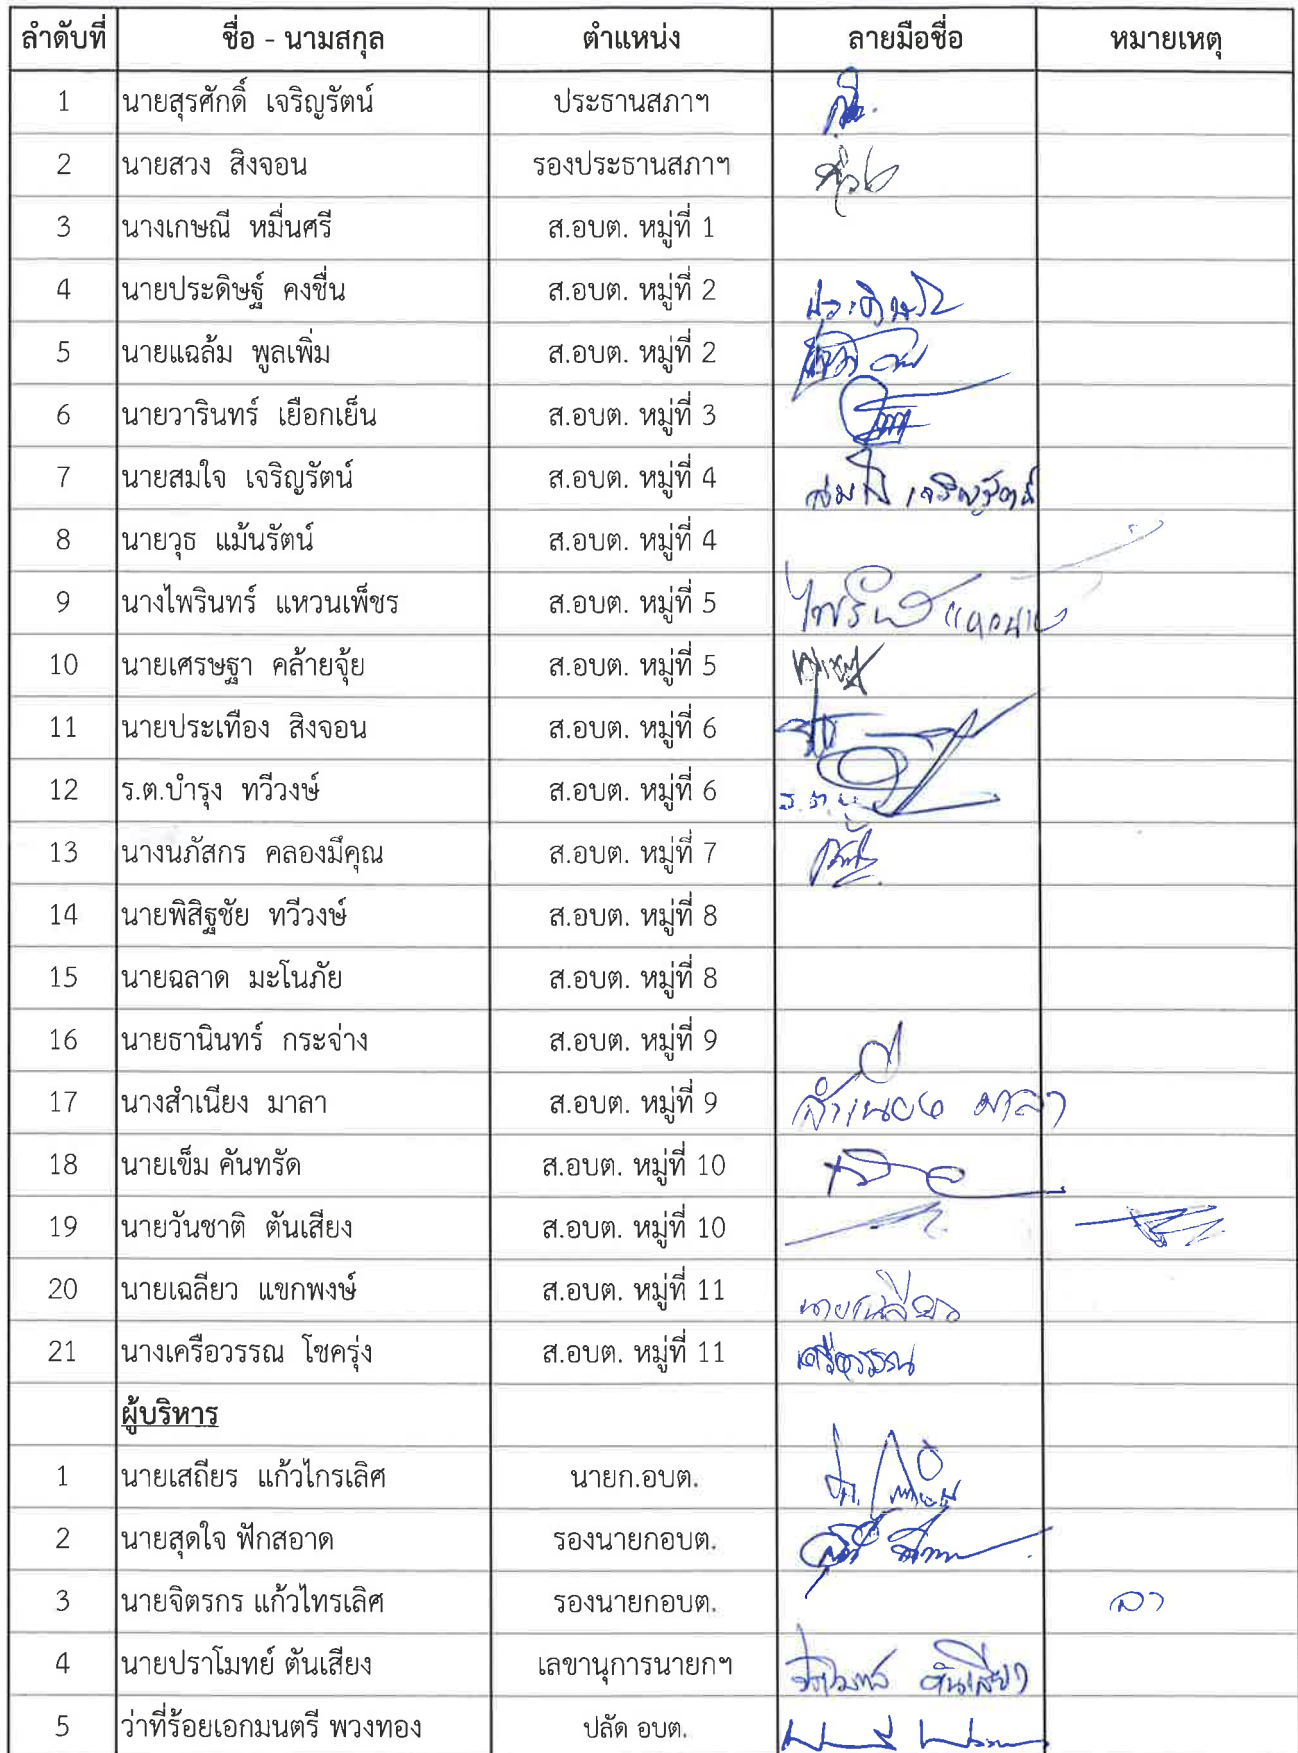 ลำดับที่ ชื่อ - นามสกุล ตำแหน่ง ลายมือชื่อ หมายเหตุ
1 นายสุรศักดิ์ เจริญรัตน์ ประธานสภาฯ
2 นายสวง สิงจอน รองประธานสภาฯ
3 นางเกษณี หมื่นศรี ส.อบต. หมู่ที่ 1
4 นายประดิษฐ์ คงชื่น ส.อบต. หมู่ที่ 2 ประดิษฐ์
5 นายแฉล้ม พูลเพิ่ม ส.อบต. หมู่ที่ 2
6 นายวารินทร์ เยือกเย็น ส.อบต. หมู่ที่ 3
7 นายสมใจ เจริญรัตน์ ส.อบต. หมู่ที่ 4 สมใจ เจริญรัตน์
8 นายวุธ แม้นรัตน์ ส.อบต. หมู่ที่ 4
9 นางไพรินทร์ แหวนเพ็ชร ส.อบต. หมู่ที่ 5
10 นายเศรษฐา คล้ายจุ้ย ส.อบต. หมู่ที่ 5
11 นายประเทือง สิงจอน ส.อบต. หมู่ที่ 6
12 ร.ต.บำรุง ทวีวงษ์ ส.อบต. หมู่ที่ 6
13 นางนภัสกร คลองมีคุณ ส.อบต. หมู่ที่ 7
14 นายพิสิฐชัย ทวีวงษ์ ส.อบต. หมู่ที่ 8
15 นายฉลาด มะโนภัย ส.อบต. หมู่ที่ 8
16 นายธานินทร์ กระจ่าง ส.อบต. หมู่ที่ 9
17 นางสำเนียง มาลา ส.อบต. หมู่ที่ 9 สำเนียง มาลา
18 นายเข็ม คันทรัด ส.อบต. หมู่ที่ 10
19 นายวันชาติ ตันเสียง ส.อบต. หมู่ที่ 10
20 นายเฉลียว แขกพงษ์ ส.อบต. หมู่ที่ 11 นายเฉลียว
21 นางเครือวรรณ โชครุ่ง ส.อบต. หมู่ที่ 11 เครือวรรณ
ผู้บริหาร
1 นายเสถียร แก้วไกรเลิศ นายก.อบต.
2 นายสุดใจ ฟักสอาด รองนายกอบต.
3 นายจิตรกร แก้วไทรเลิศ รองนายกอบต. ลา
4 นายปราโมทย์ ตันเสียง เลขานุการนายกฯ ปราโมทย์ ตันเสียง
5 ว่าที่ร้อยเอกมนตรี พวงทอง ปลัด อบต.